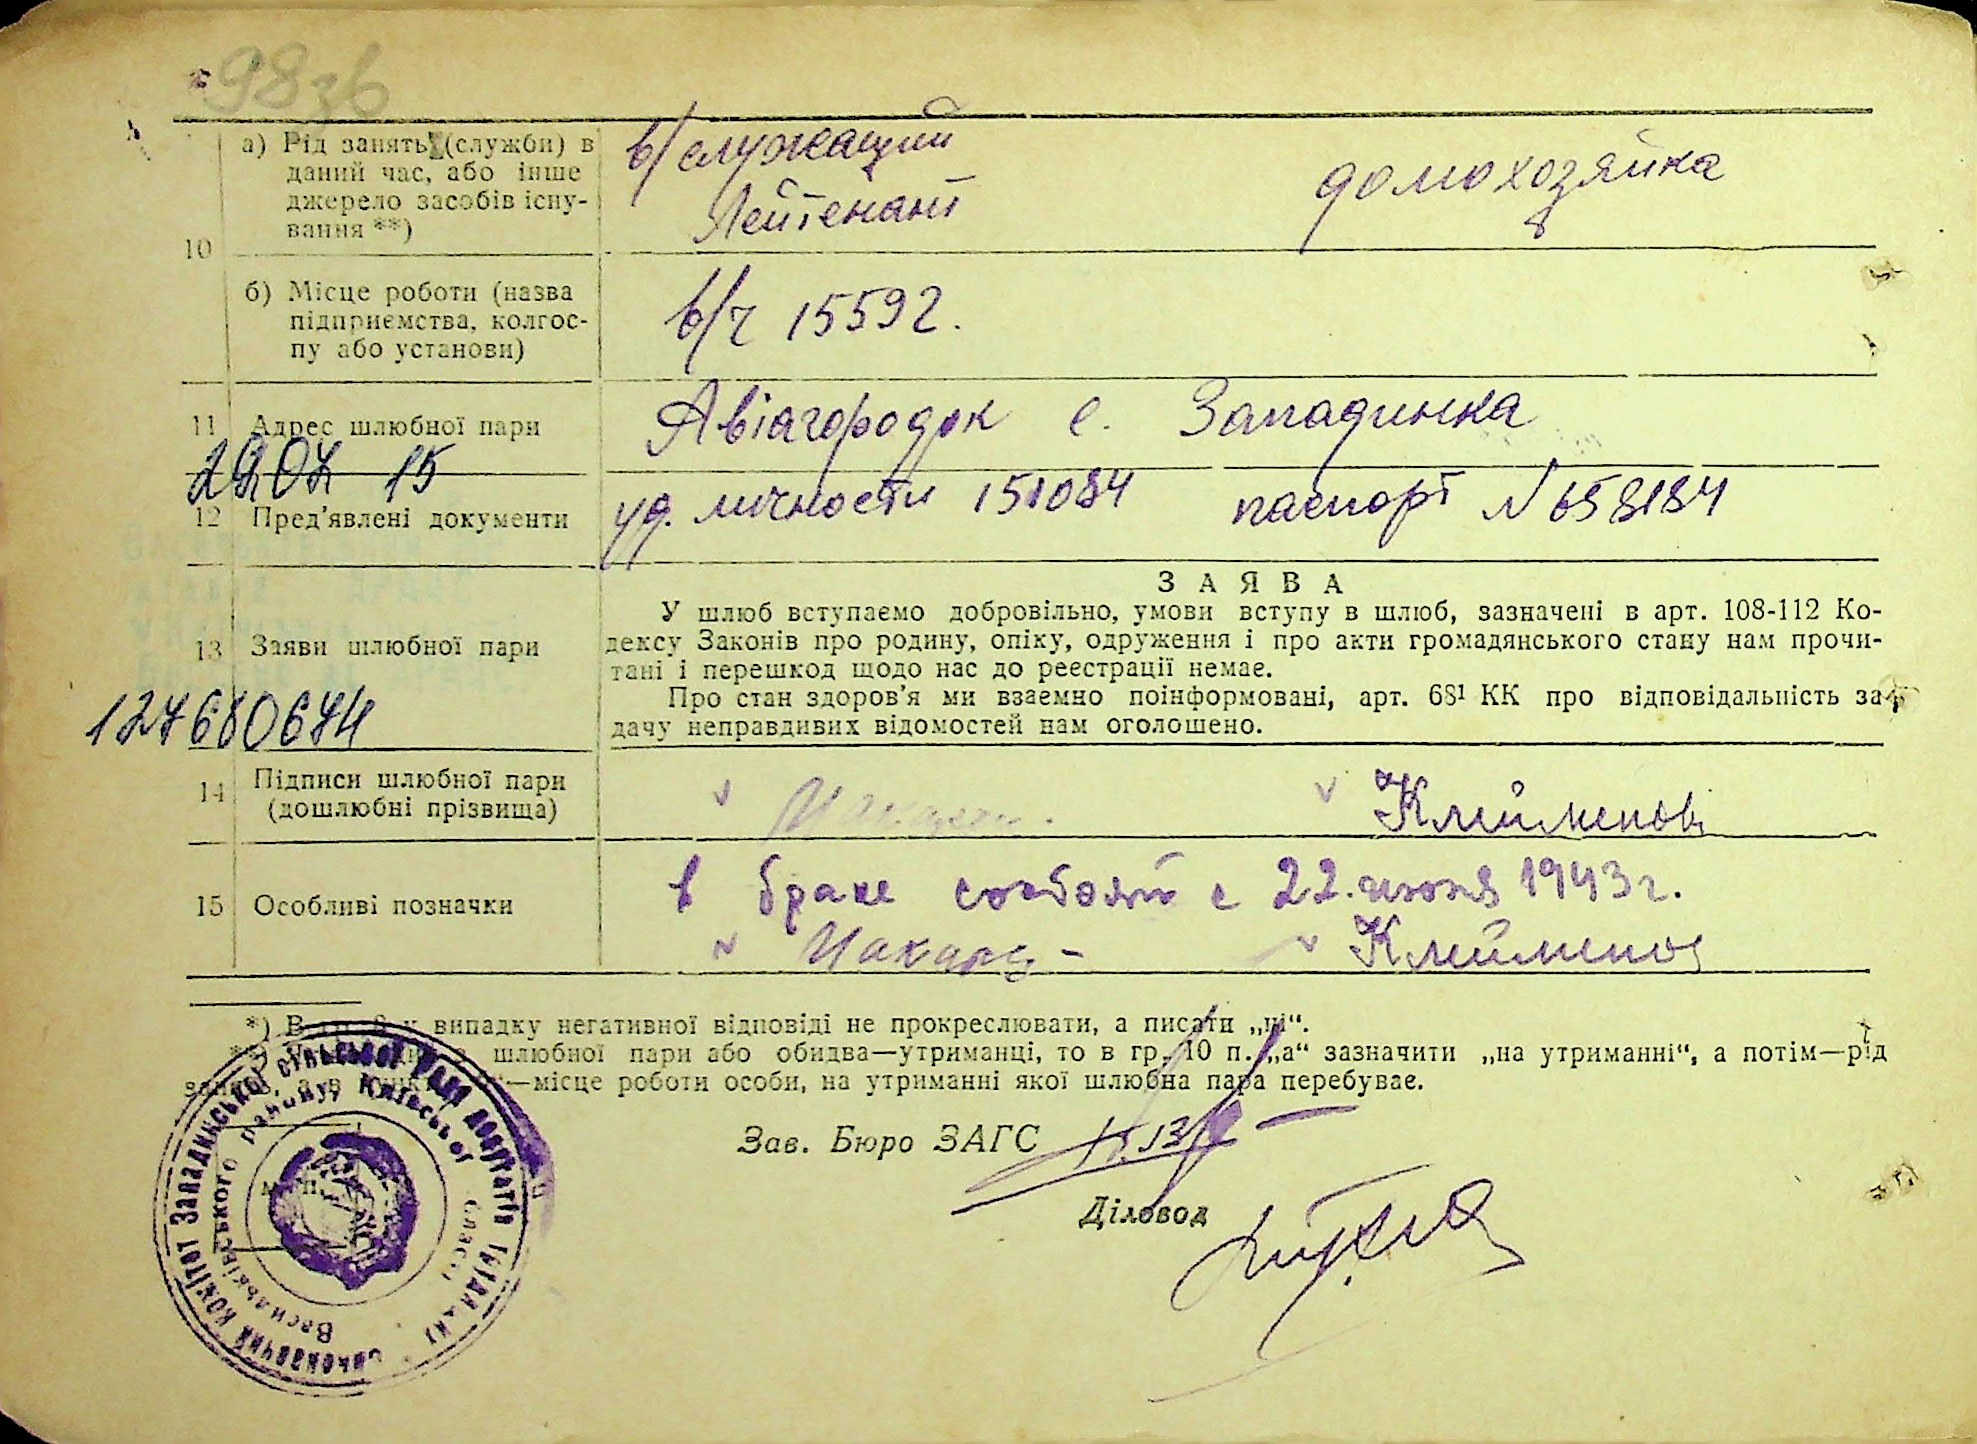 98зв
а) Рід занять (служби) в
даний час, або інше
джерело засобів існу-
вання **)
в/служащий
Лейтенант
домохозяйка
10
б) Місце роботи (назва
підприємства, колгос-
пу або установи)
в/ч 15592.
11 Адрес шлюбної пари
Авіагородок с. Западинка
2904 15
12 Пред'явлені документи
уд. личности 151084 паспорт N 658184
13 Заяви шлюбної пари
ЗАЯВА
У шлюб вступаємо добровільно, умови вступу в шлюб, зазначені в арт. 108-112 Ко-
дексу Законів про родину, опіку, одруження і про акти громадянського стану нам прочи-
тані і перешкод щодо нас до реєстрації немає.
Про стан здоров'я ми взаємно поінформовані, арт. 68¹ КК про відповідальність за
дачу неправдивих відомостей нам оголошено.
127680674
14 Підписи шлюбної пари
(дошлюбні прізвища)
Клейменов
15 Особливі позначки
в браке состоят с 22. июня 1943 г.
Клейменов
*) В гр. 8 у випадку негативної відповіді не прокреслювати, а писати „ні“.
шлюбної пари або обидва—утриманці, то в гр. 10 п. „а“ зазначити „на утриманні“, а потім—рід
—місце роботи особи, на утриманні якої шлюбна пара перебуває.
Зав. Бюро ЗАГС
Діловод
Виконавчий комітет Западинської сільської Ради депутатів трудящих
Васильківського району Київської області